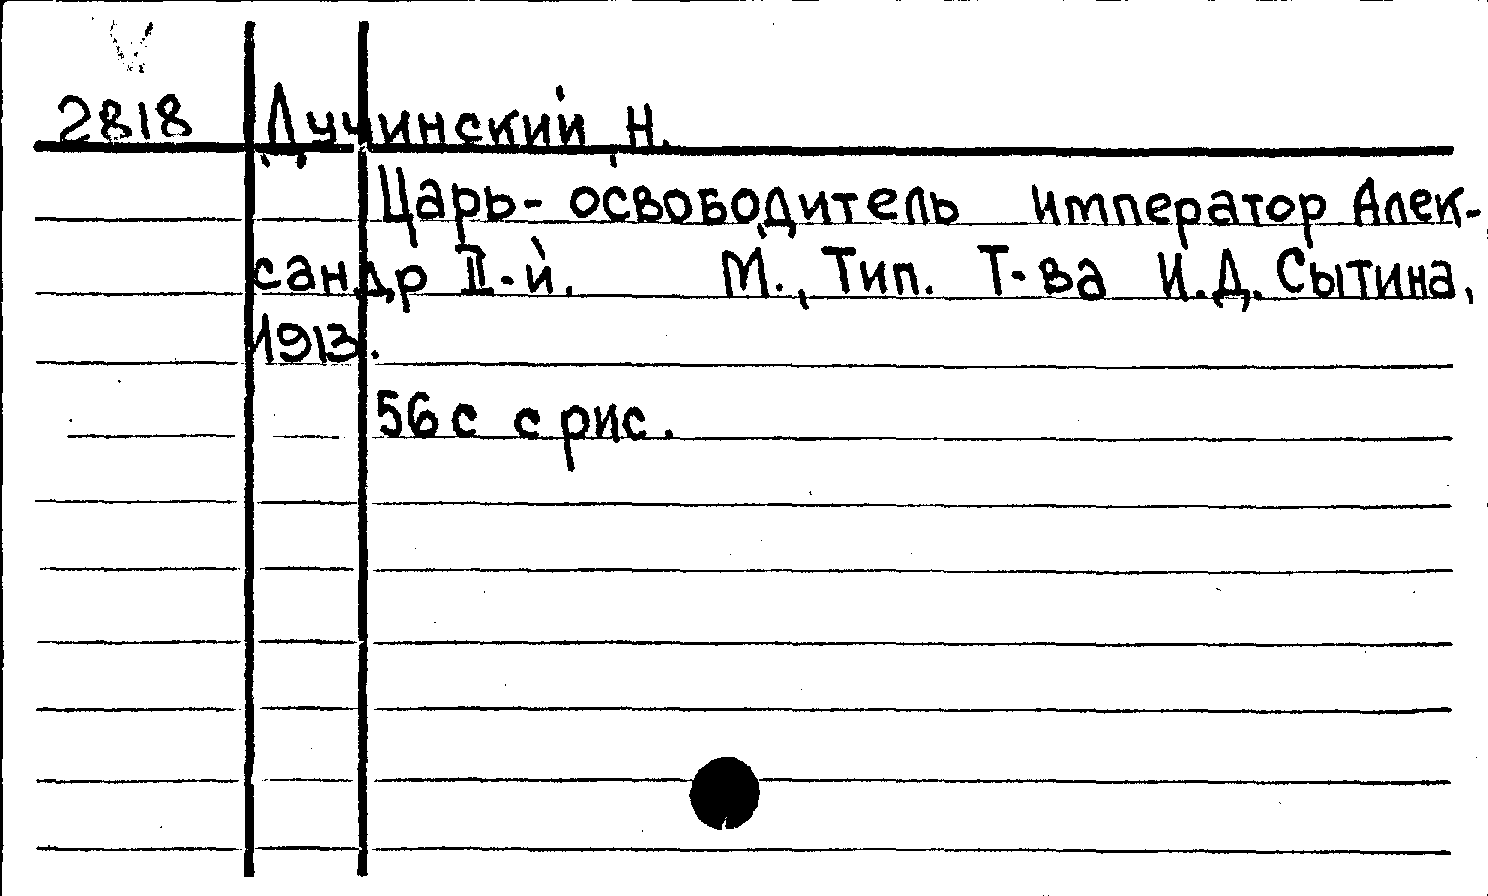 2818 Дучинский Н.
Царь-освободитель император Алек-
сандр II-й. М., Тип. Т-ва И.Д. Сытина,
1913.
56 с с рис.